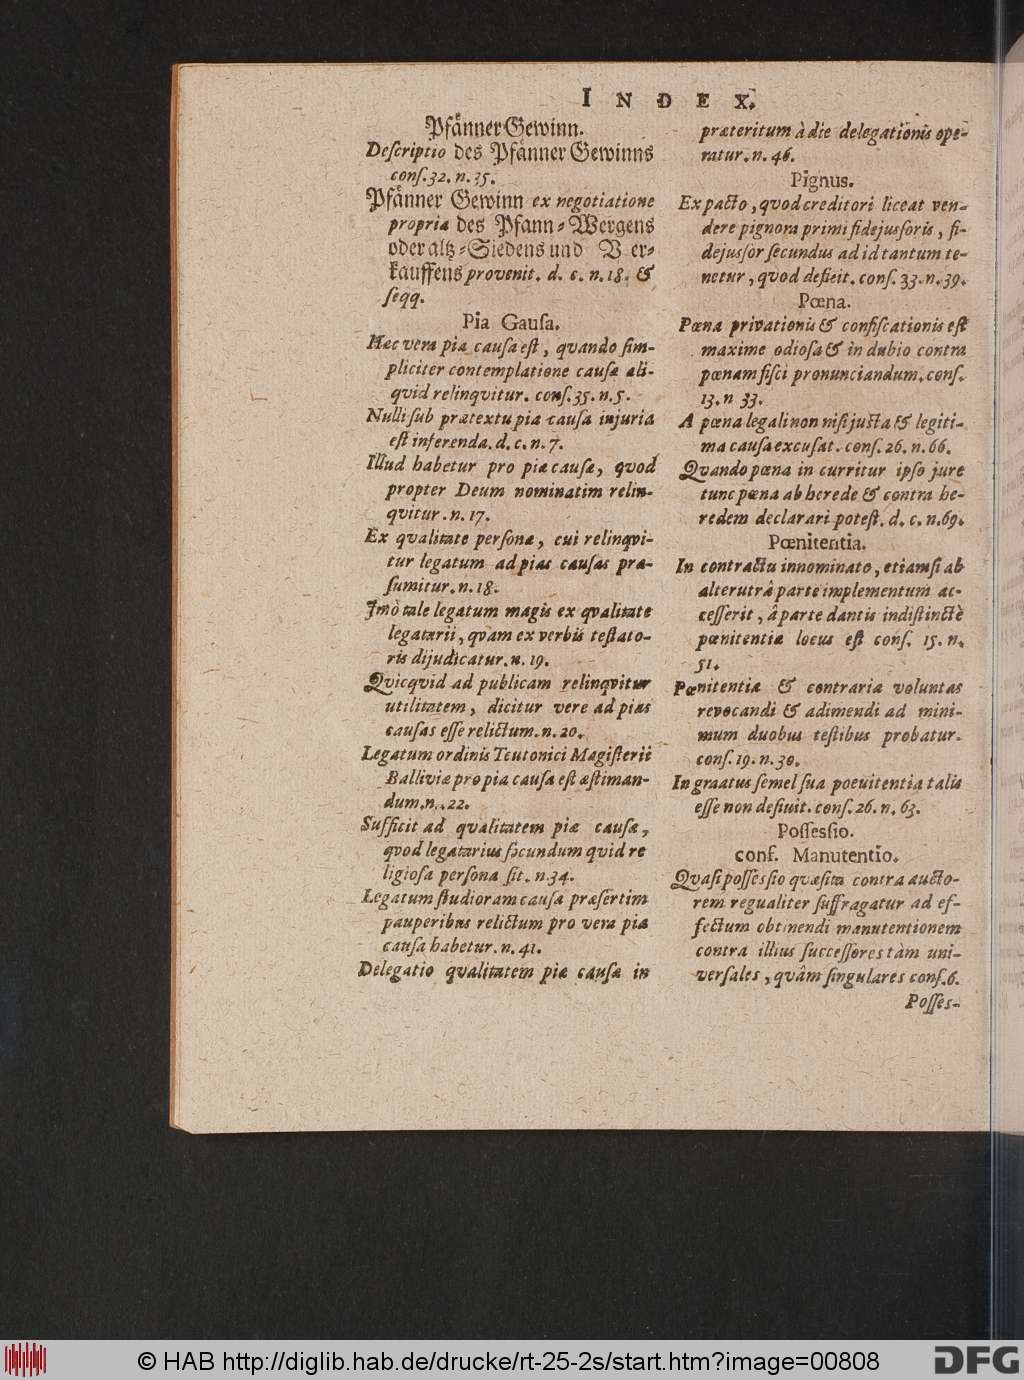 INDEX.
Pfånner Gewinn.
Deſcriptio des Pfånner Gewinns
conſ. 32. n. 35.
Pfånner Gewinn ex negotiatione
propria des Pfann-Wergens
oder altz-Siedens und Ver-
kauffens provenit. d. c. n. 18. &
ſeqq.
Pia Gauſa.
Hæc vera pia cauſa eſt, quando ſim-
pliciter contemplatione cauſæ ali-
quid relinqvitur. conſ. 35. n. 5.
Nulli ſub prætextu pia cauſa injuria
eſt inferenda. d. c. n. 7.
Illud habetur pro pia cauſæ, qvod
propter Deum nominatim relin-
qvitur. n. 17.
Ex qvalitate perſonæ, cui relinqvi-
tur legatum ad pias cauſas præ-
ſumitur. n. 18.
Imò tale legatum magis ex qvalitate
legatarii, qvam ex verbis teſtato-
ris dijudicatur. n. 19.
Qvicqvid ad publicam relinqvitur
utilitatem, dicitur vere ad pias
cauſas eſſe relictum. n. 20.
Legatum ordinis Teutonici Magiſterii
Balliviæ pro pia cauſa eſt æſtiman-
dum. n. 22.
Sufficit ad qvalitatem piæ cauſæ,
qvod legatarius ſecundum quid re
ligioſa perſona ſit. n. 34.
Legatum ſtudioram cauſa præſertim
pauperibus relictum pro vera pia
cauſa habetur. n. 41.
Delegatio qvalitatem piæ cauſæ in
præteritum à die delegationis ope-
ratur. n. 46.
Pignus.
Ex pacto, qvod creditori liceat ven-
dere pignora primi fidejuſſoris, fi-
dejuſſor ſecundus ad id tantum te-
netur, qvod deficit. conſ. 33. n. 39.
Pœna.
Pœna privationis & confiſcationis eſt
maxime odioſa & in dubio contra
pœnam fiſci pronunciandum. conſ.
13. n 33.
A pœna legali non niſi juſta & legiti-
ma cauſa excuſat. conſ. 26. n. 66.
Qvando pœna in curritur ipſo jure
tunc pœna ab herede & contra he-
redem declarari poteſt. d. c. n. 69.
Pœnitentia.
In contractu innominato, etiamſi ab
alterutrâ parte implementum ac-
ceſſerit, â parte dantis indiſtinctè
pœnitentiæ locus eſt conſ. 15. n.
51.
Pœnitentiæ & contraria voluntas
revocandi & adimendi ad mini-
mum duobus teſtibus probatur.
conſ. 19. n. 30.
Ingraatus ſemel ſua poeuitentia talis
eſſe non deſiuit. conſ. 26. n. 63.
Poſſeſsio.
conf. Manutentio.
Qvaſi poſſeſsio quæſita contra aucto-
rem regualiter ſuffragatur ad ef-
fectum obtinendi manutentionem
contra illius ſucceſſores tàm uni-
verſales, qvâm ſingulares conſ. 6.
Poſſes-
© HAB http://diglib.hab.de/drucke/rt-25-2s/start.htm?image=00808
DFG